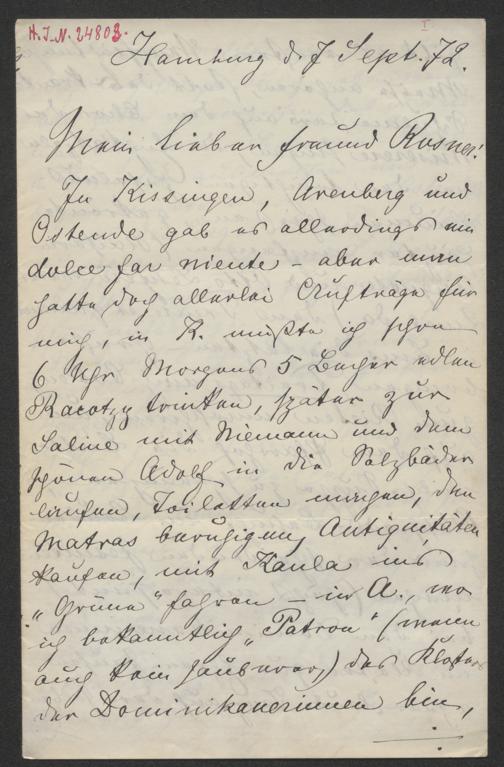 H.I.N. 24803.
I
Hamburg d. 7 Sept. 72.
Mein lieber Freund Rosner!
In Kissingen, Arenberg und
Ostende gab es allerdings ein
dolce far niente – aber man
hatte doch allerlei Aufträge für
mich, in K. mußte ich schon
6 Uhr Morgens 5 Becher edlen
Racotzy trinken, später zur
Saline mit Niemann und dem
schönen Adolf in die Salzbäder
laufen, Toiletten machen, den
Matras beruhigen, Antiquitäten
kaufen, mit Kaula ins
„Grüne" fahren – in A., wo
ich bekanntlich „Patron" (wenn
auch kein sauberer,) des Klosters
der Dominikanerinnen bin,